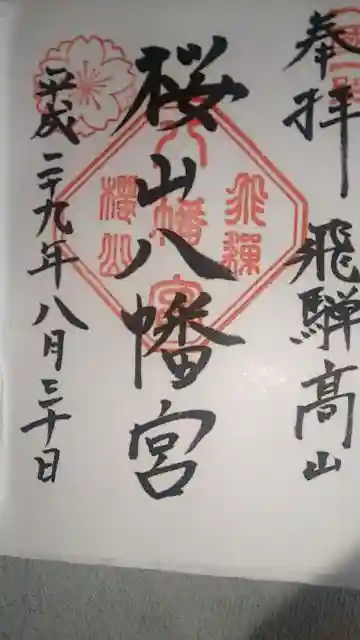 奉拝 飛騨高山
桜山八幡宮
平成二十九年八月三十日
飛騨
八幡宮
櫻山